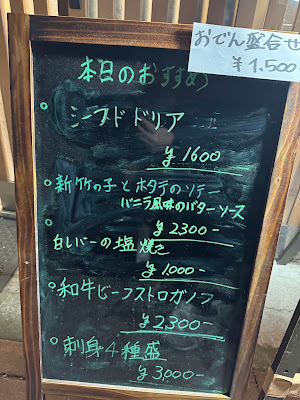 おでん盛合せ
¥1,500-
本日のおすすめ
○ シーフドドリア
¥1600
○ 新竹の子とホタテのソテー
バニラ風味のバターソース
¥2300-
○ 白レバーの塩焼き
¥1,000-
○ 和牛ビーフストロガノフ
¥2,300-
○ 刺身4種盛
¥3,000-